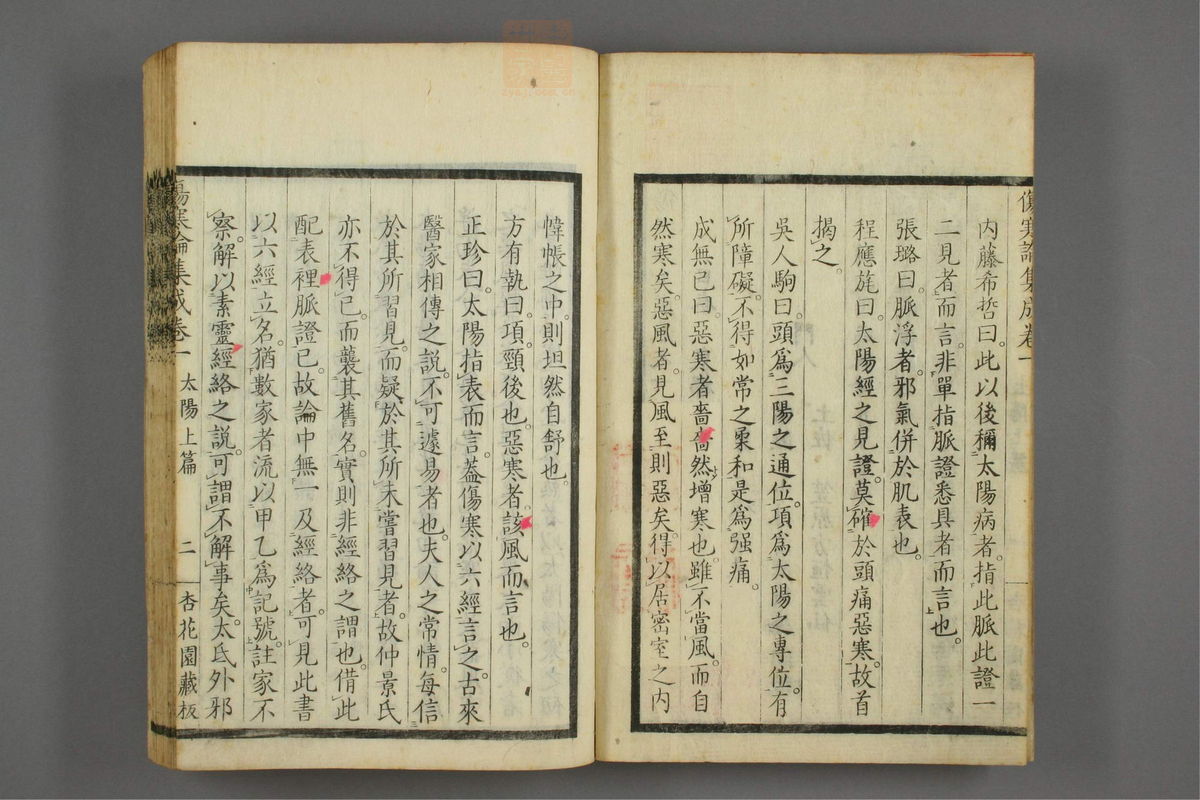 傷寒論集成卷一
內藤希哲曰。此以後稱太陽病者。指此脈此證一
二見者而言。非單指脈證悉具者而言也。
張璐曰。脈浮者。邪氣併於肌表也。
程應旄曰。太陽經之見證。莫確於頭痛惡寒。故首
揭之。
吳人駒曰。頭爲三陽之通位。項爲太陽之專位。有
所障礙。不得如常之柔和。是爲强痛。
成無已曰。惡寒者。嗇嗇然增寒也。雖不當風。而自
然寒矣。惡風者。見風至則惡矣。得以居密室之內
幃帳之中。則坦然自舒也。
方有執曰。項。頸後也。惡寒者。該風而言也。
正珍曰。太陽指表而言。蓋傷寒以六經言之。古來
醫家相傳之說。不可遽易者也。夫人之常情。每信
於其所習見。而疑於其所未嘗習見者。故仲景氏
亦不得已。而襲其舊名。實則非經絡之謂也。借此
配表裡脈證已。故論中無一及經絡者。可見此書
以六經立名。猶數家者流以甲乙爲記號。註家不
察。解以素靈經絡之說。可謂不解事矣。太氐外邪
傷寒論集成卷一 太陽上篇 二 杏花園藏板